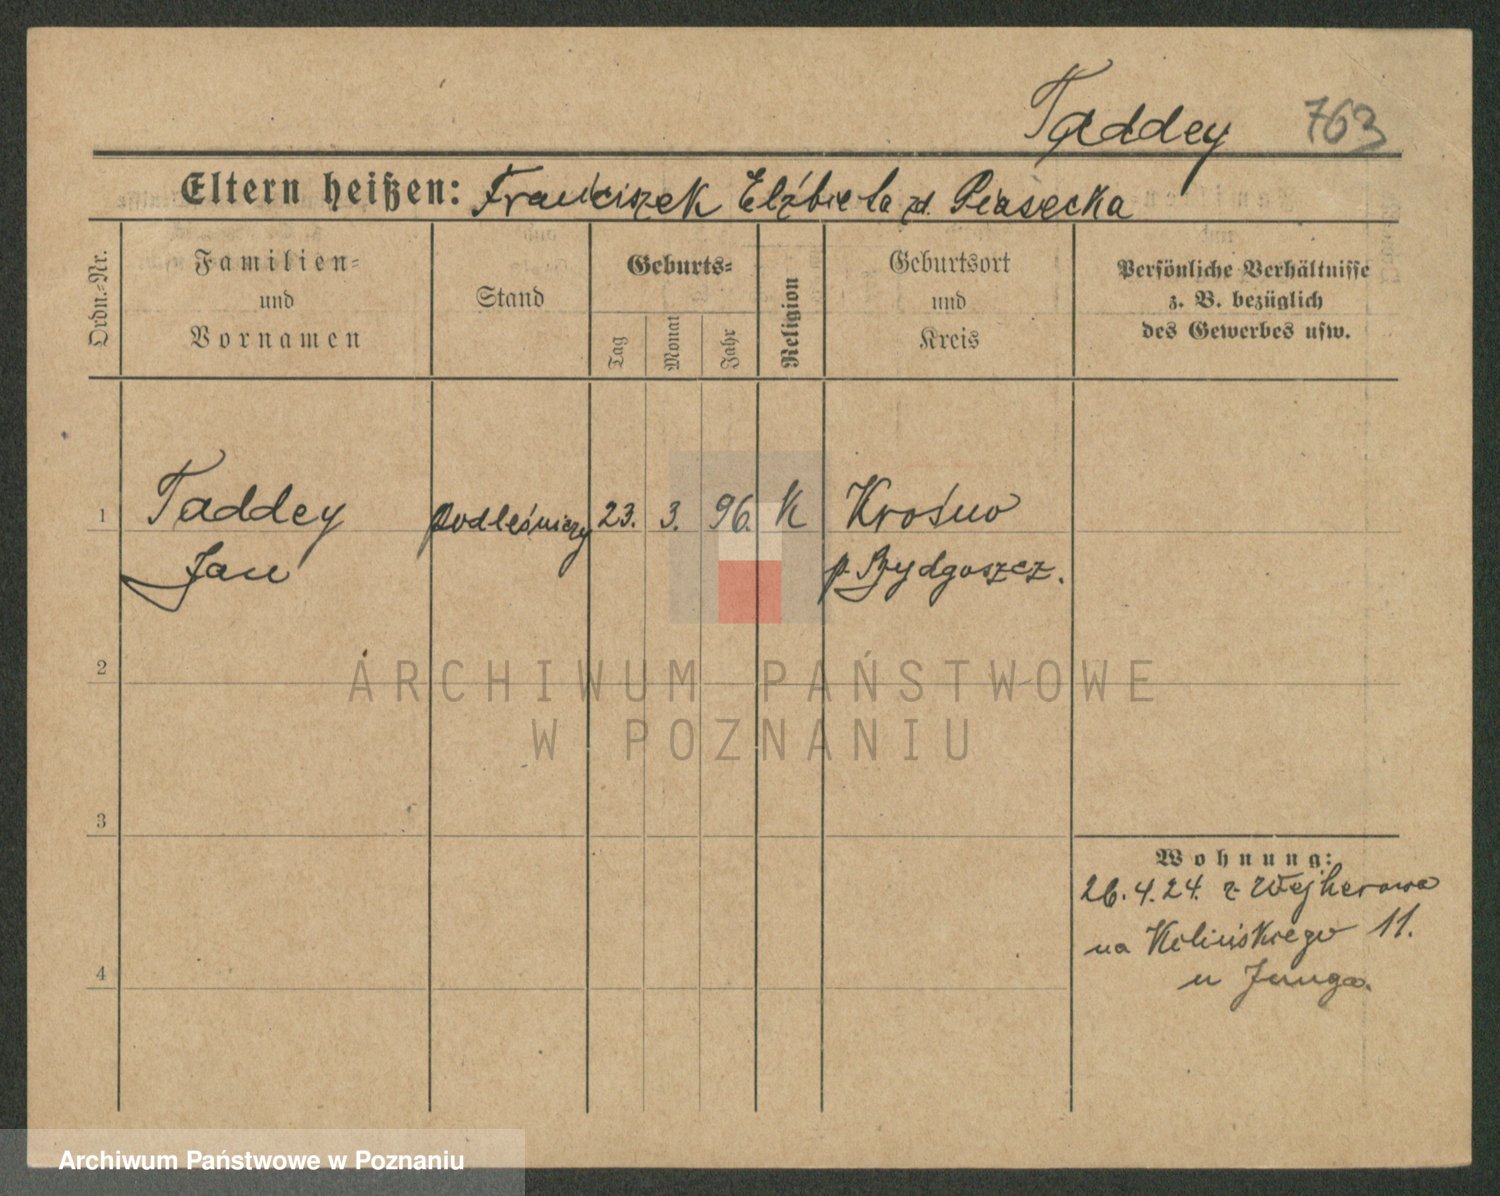 Taddey 763
Eltern heißen: Franciszek Elżbieta zd. Piasecka
Ordn.-Nr.
Familien-
und
Vornamen
Stand
Geburts-
Tag
Monat
Jahr
Religion
Geburtsort
und
Kreis
Persönliche Verhältnisse
z. B. bezüglich
des Gewerbes usw.
1 Taddey podleśniczy 23. 3. 96. K Krośno
Jan p. Bydgoszcz.
2
3
4
Wohnung:
26.4.24. z Wejherowa
na Kilińskiego 11.
u Junga.
ARCHIWUM PAŃSTWOWE
W POZNANIU
Archiwum Państwowe w Poznaniu